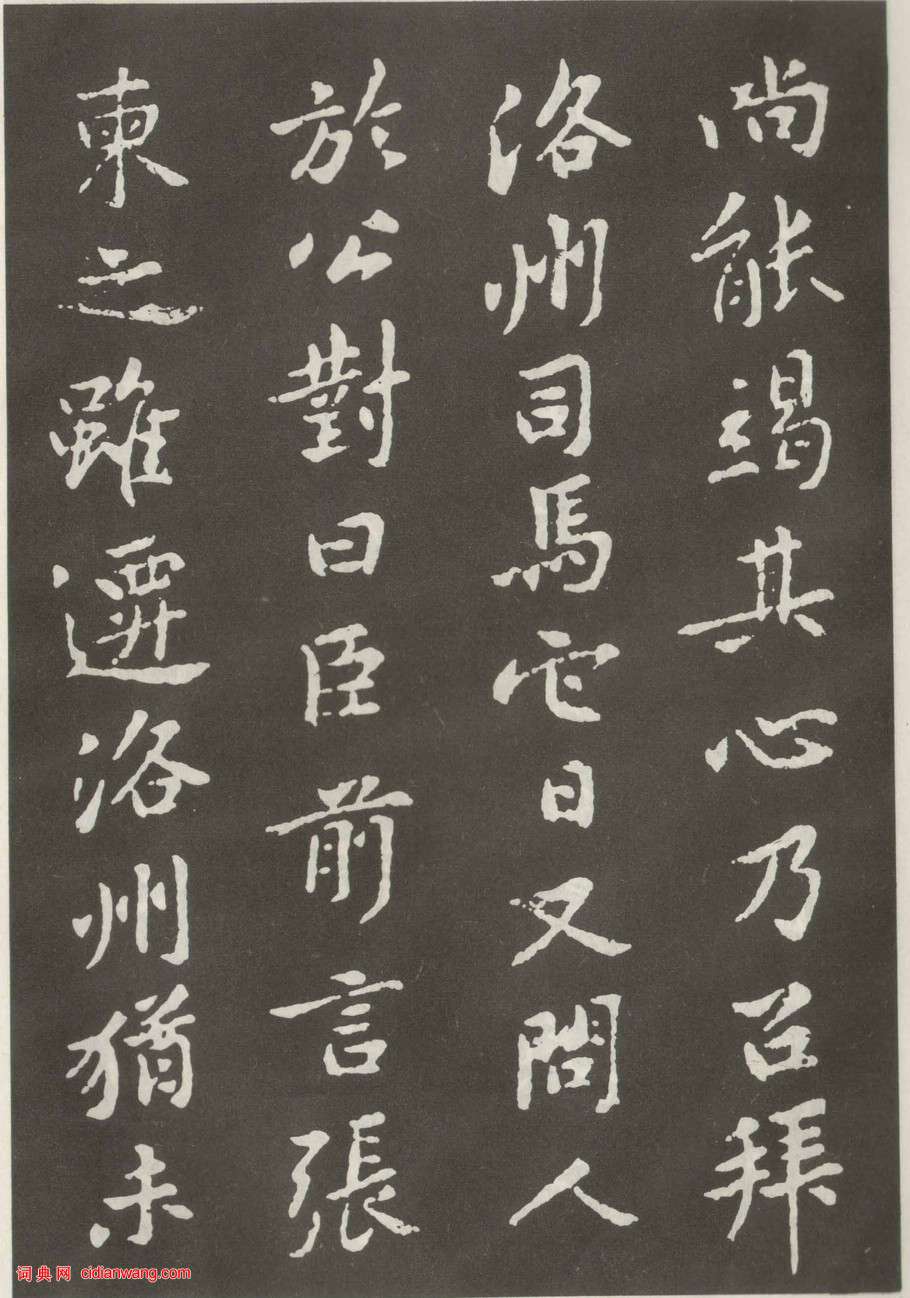 尚能竭其心乃召拜
洛州司馬它日又問人
於公對曰臣前言張
柬之雖遷洛州猶未
词典网 cidianwang.com